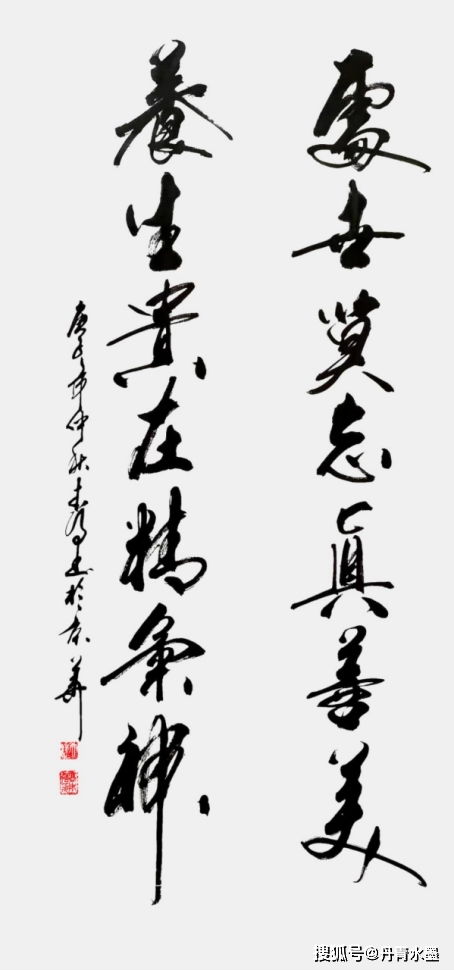 處世莫忘眞善美
養生貴在精氣神
庚子年仲秋書於京華
搜狐号@丹青水墨